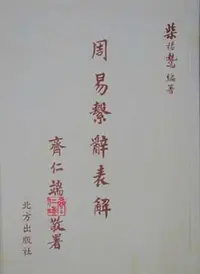 柴荏鷙 編著
周易繫辭表解
齊仁端敬署
北方出版社